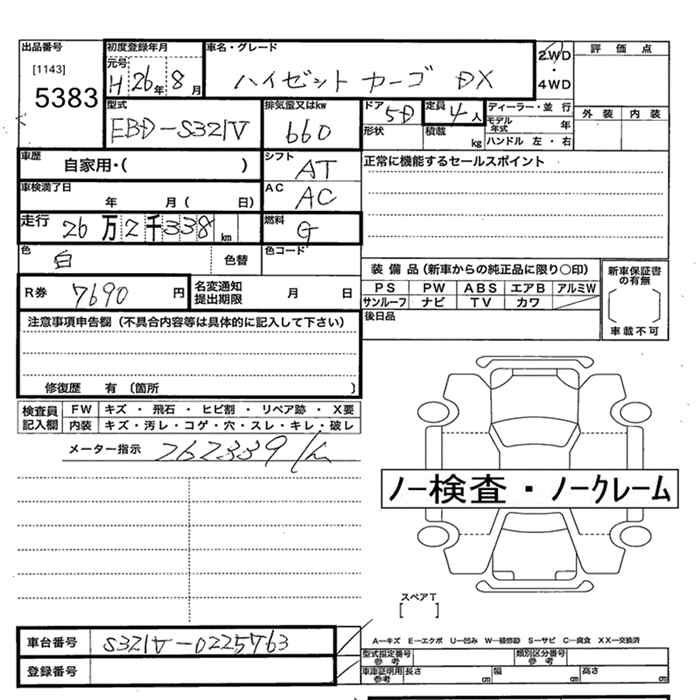 出品番号 [1143] 5383
初度登録年月 元号 H 26年 8月
車名・グレード ハイゼット カーゴ DX
2WD ・ 4WD
評価点 外装 内装
型式 EBD-S321V
排気量又はkw 660
ドア 5D 形状
定員 4人 積載 kg
ディーラー・並行
モデル年式 年
ハンドル 左・右
車歴 自家用・( )
シフト AT
正常に機能するセールスポイント
車検満了日 年 月( 日)
AC AC
走行 26万2千338km
燃料 G
色 白 色替
色コード
装備品(新車からの純正品に限り○印)
PS PW ABS エアB アルミW
サンルーフ ナビ TV カワ
新車保証書の有無 [ ] 車載不可
R券 7690円
名変通知 提出期限 月 日
後日品
注意事項申告欄(不具合内容等は具体的に記入して下さい)
修復歴 有(箇所 )
検査員記入欄
FW キズ・飛石・ヒビ割・リペア跡・X要
内装 キズ・汚レ・コゲ・穴・スレ・キレ・破レ
メーター指示 262339km
ノー検査・ノークレーム
スペアT
[ ]
車台番号 S321V-0225763
登録番号
A―キズ E―エクボ U―凹み W―補修跡 S―サビ C―腐食 XX―交換済
型式指定番号 参考
類別区分番号 参考
車庫証明用 参考 長さ cm 幅 cm 高さ cm